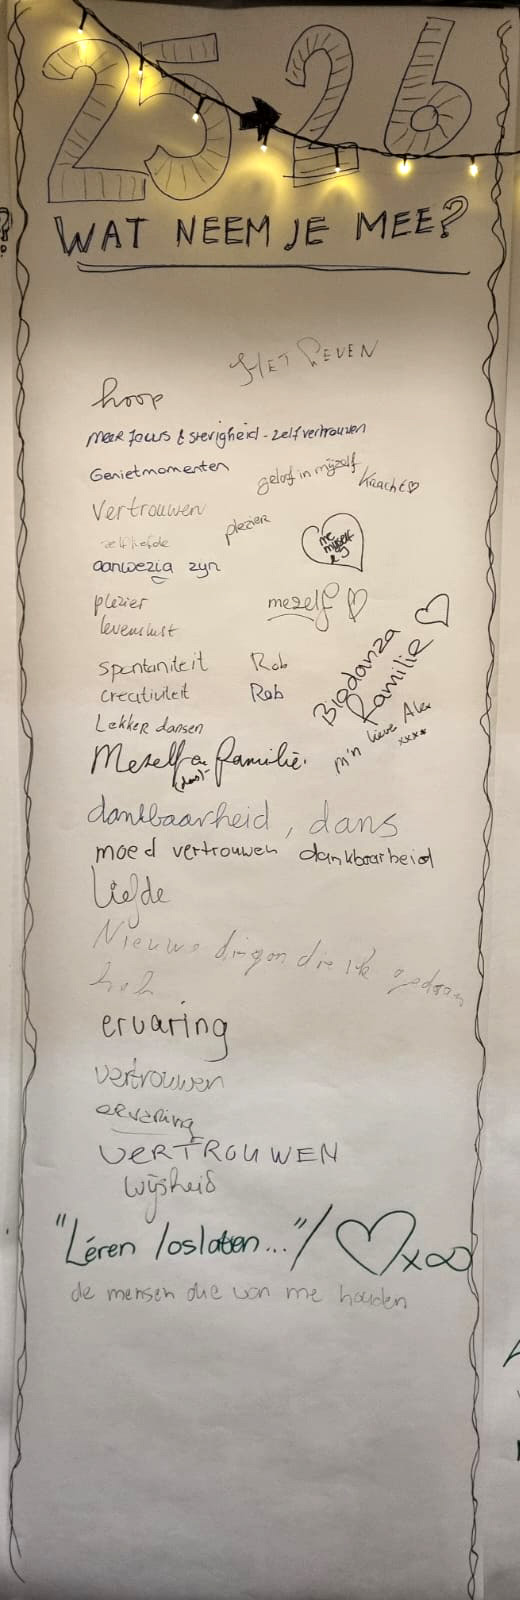 25 → 26
WAT NEEM JE MEE?
HET LEVEN
hoop
meer focus & stevigheid - zelfvertrouwen
Genietmomenten
geloof in mijzelf
Kracht ♡
Vertrouwen
plezier
zelfliefde
me myself & I
aanwezig zijn
plezier
mezelf ♡
levenslust
spontaniteit
Rob
creativiteit
Rob
Biodanza familie ♡
m'n lieve Alex
xxxx
Lekker dansen
Mezelf en familie.
(dans)
dankbaarheid, dans
moed vertrouwen dankbaarheid
liefde
Nieuwe dingen die ik gedaan
heb
ervaring
vertrouwen
ervaring
VERTROUWEN
wijsheid
"Léren loslaten..." / ♡ x ∞
de mensen die van me houden